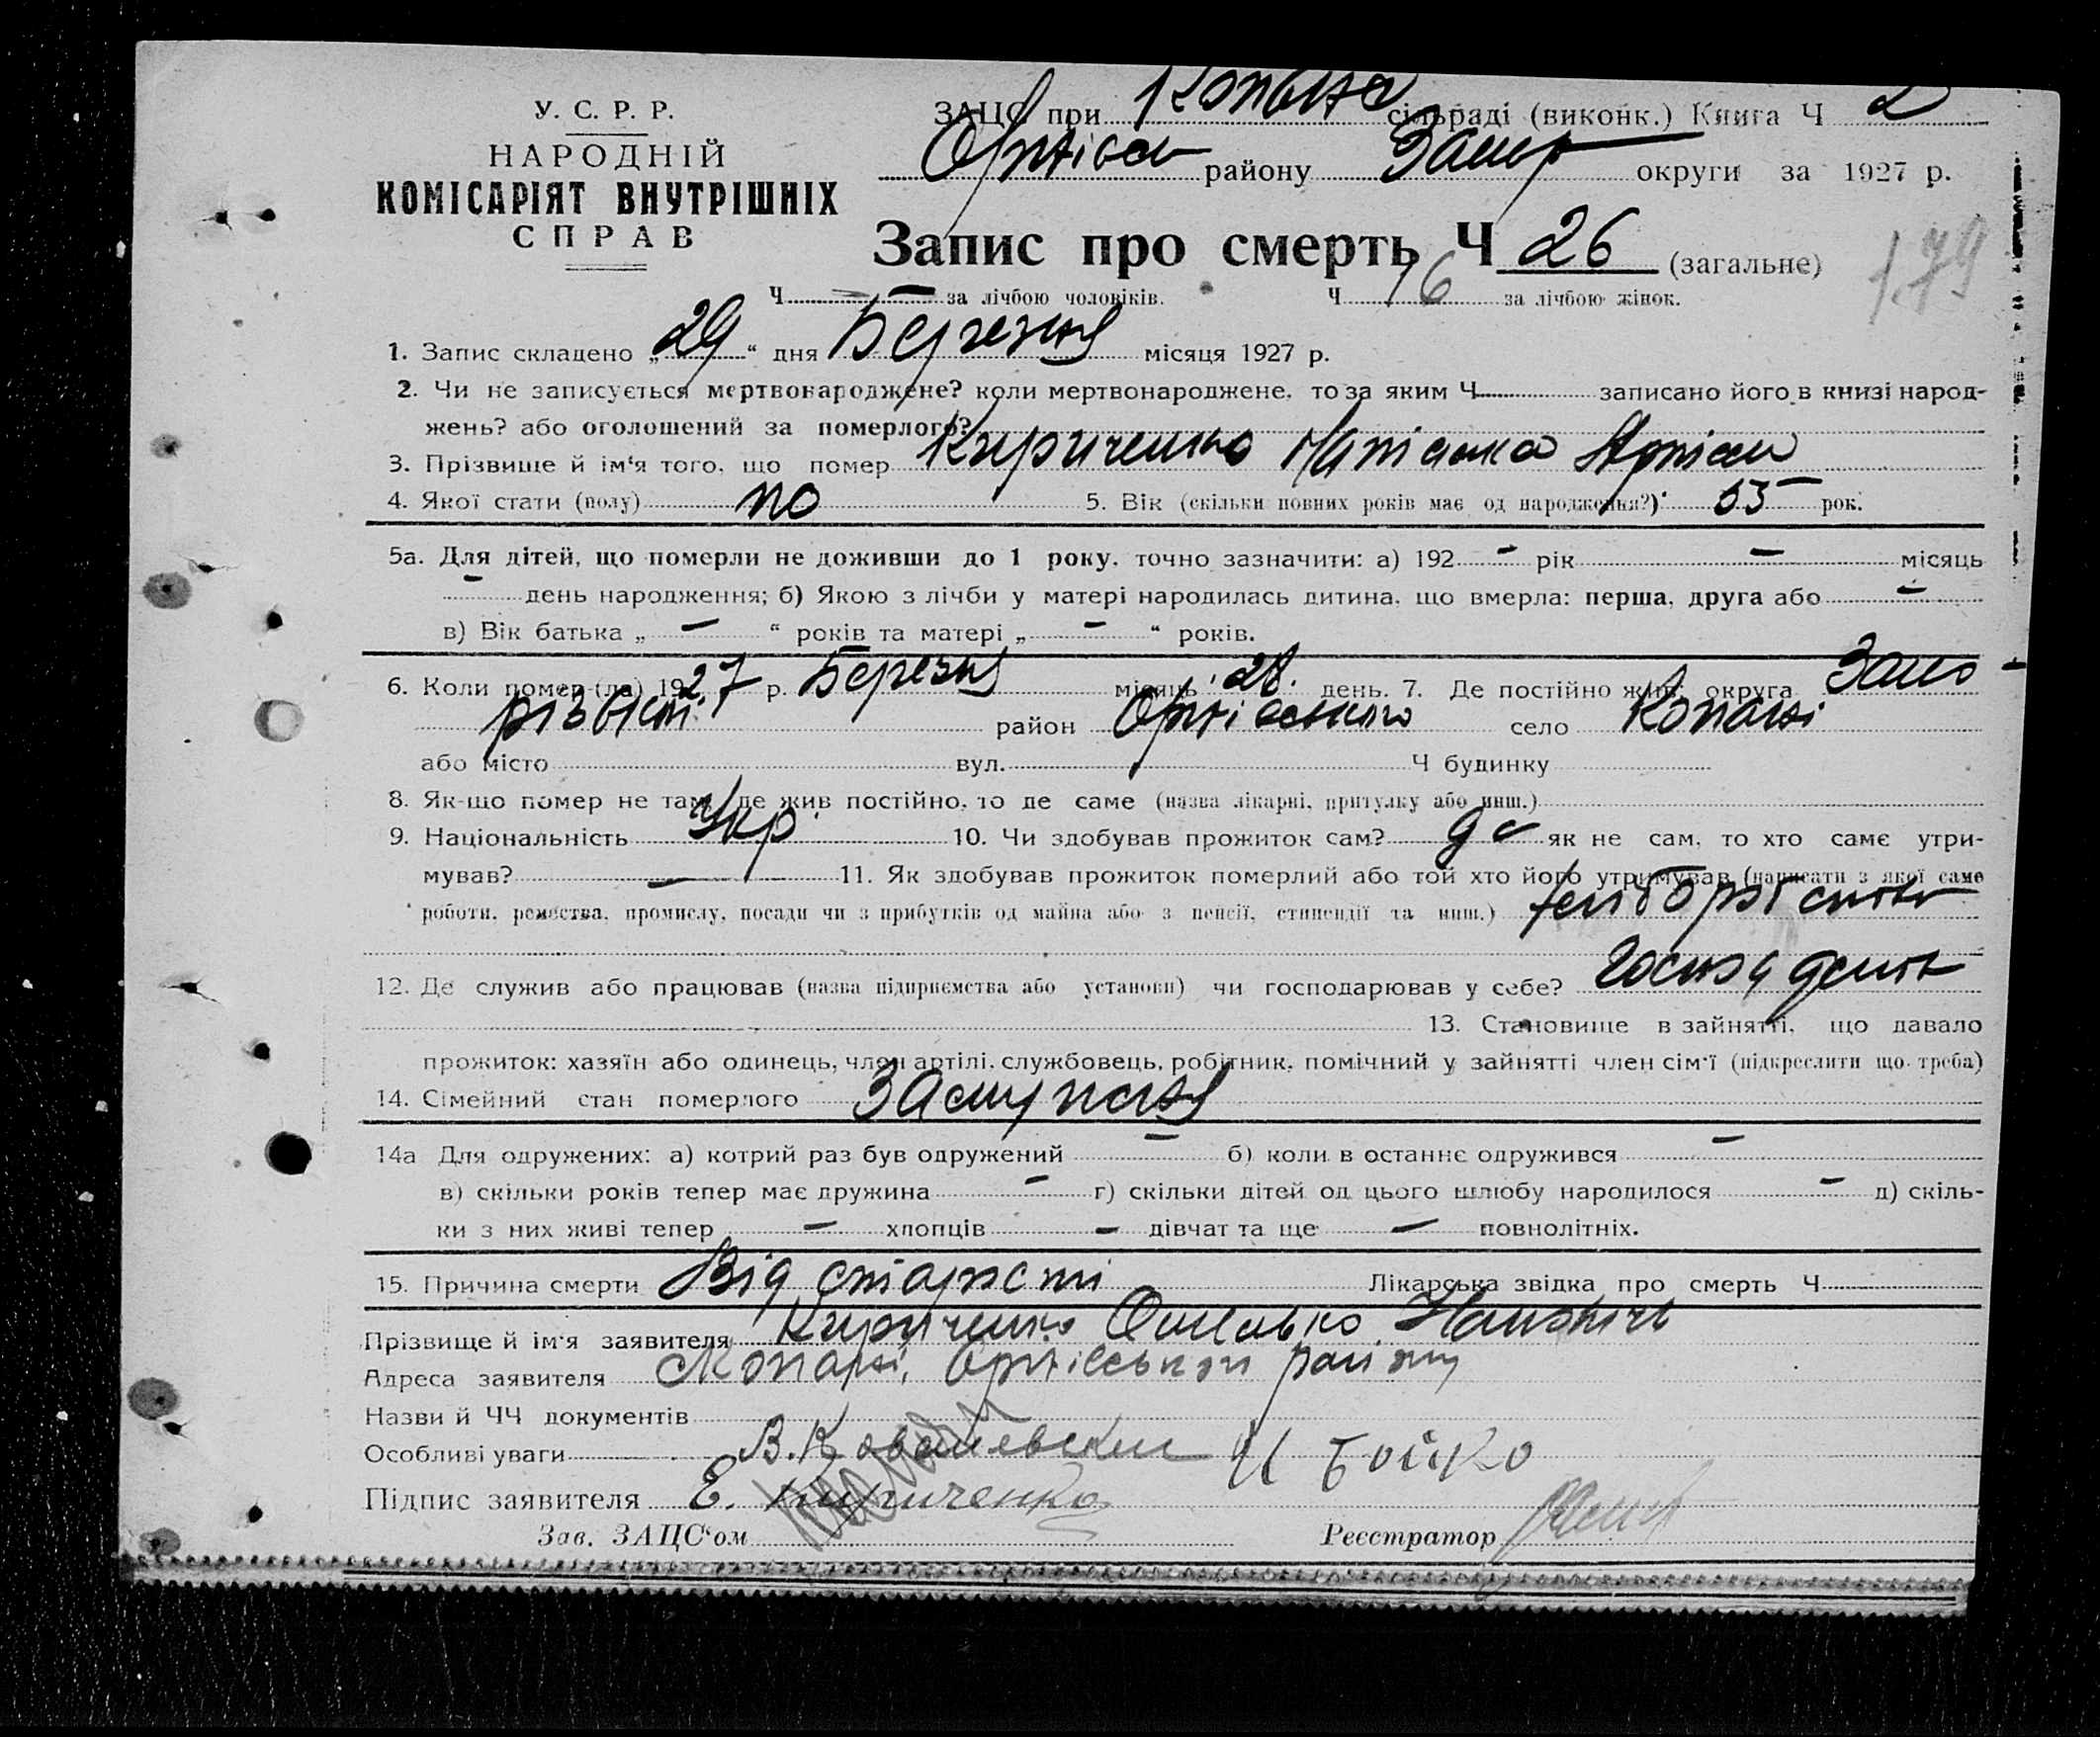 У. С. Р. Р.
НАРОДНІЙ
КОМІСАРІЯТ ВНУТРІШНІХ
СПРАВ
ЗАЦС при сільраді (виконк.) Книга Ч 2
району округи за 1927 р.
Запис про смерть Ч 26 (загальне)
179
Ч — за лічбою чоловіків. Ч 16 за лічбою жінок.
1. Запис складено „29“ дня Березня місяця 1927 р.
2. Чи не записується мертвонароджене? коли мертвонароджене, то за яким Ч записано його в книзі народ-
жень? або оголошений за померлого?
3. Прізвище й ім‘я того, що помер Кириченко
4. Якої стати (полу) 5. Вік (скільки повних років має од народження?) рок.
5а. Для дітей, що померли не доживши до 1 року, точно зазначити: а) 192 - рік — місяць
— день народження; б) Якою з лічби у матері народилась дитина, що вмерла: перша, друга або —
в) Вік батька „ — “ років та матері „ - “ років.
6. Коли помер (ла) 1927 р. Березня місяць 28. день. 7. Де постійно жив: округа Запо-
район село Копані
або місто вул. Ч будинку
8. Як-що помер не там, де жив постійно, то де саме (назва лікарні, притулку або инш.)
9. Національність Укр. 10. Чи здобував прожиток сам? як не сам, то хто саме утри-
мував? — 11. Як здобував прожиток померлий або той хто його утримував (написати з якої саме
роботи, ремества, промислу, посади чи з прибутків од майна або з пенсії, стипендії та инш.)
12. Де служив або працював (назва підприємства або установи) чи господарював у себе?
13. Становище в зайнятті, що давало
прожиток: хазяїн або одинець, член артілі, службовець, робітник, помічний у зайнятті член сім‘ї (підкреслити що треба)
14. Сімейний стан померлого
14а Для одружених: а) котрий раз був одружений — б) коли в останнє одружився —
в) скільки років тепер має дружина — г) скільки дітей од цього шлюбу народилося — д) скіль-
ки з них живі тепер — хлопців — дівчат та ще — повнолітніх.
15. Причина смерти Від старости Лікарська звідка про смерть Ч
Прізвище й ім‘я заявителя Кириченко
Адреса заявителя
Назви й ЧЧ документів
Особливі уваги В. Ковалевский И Бойко
Підпис заявителя Е. Кириченко
Зав. ЗАЦС‘ом Реєстратор